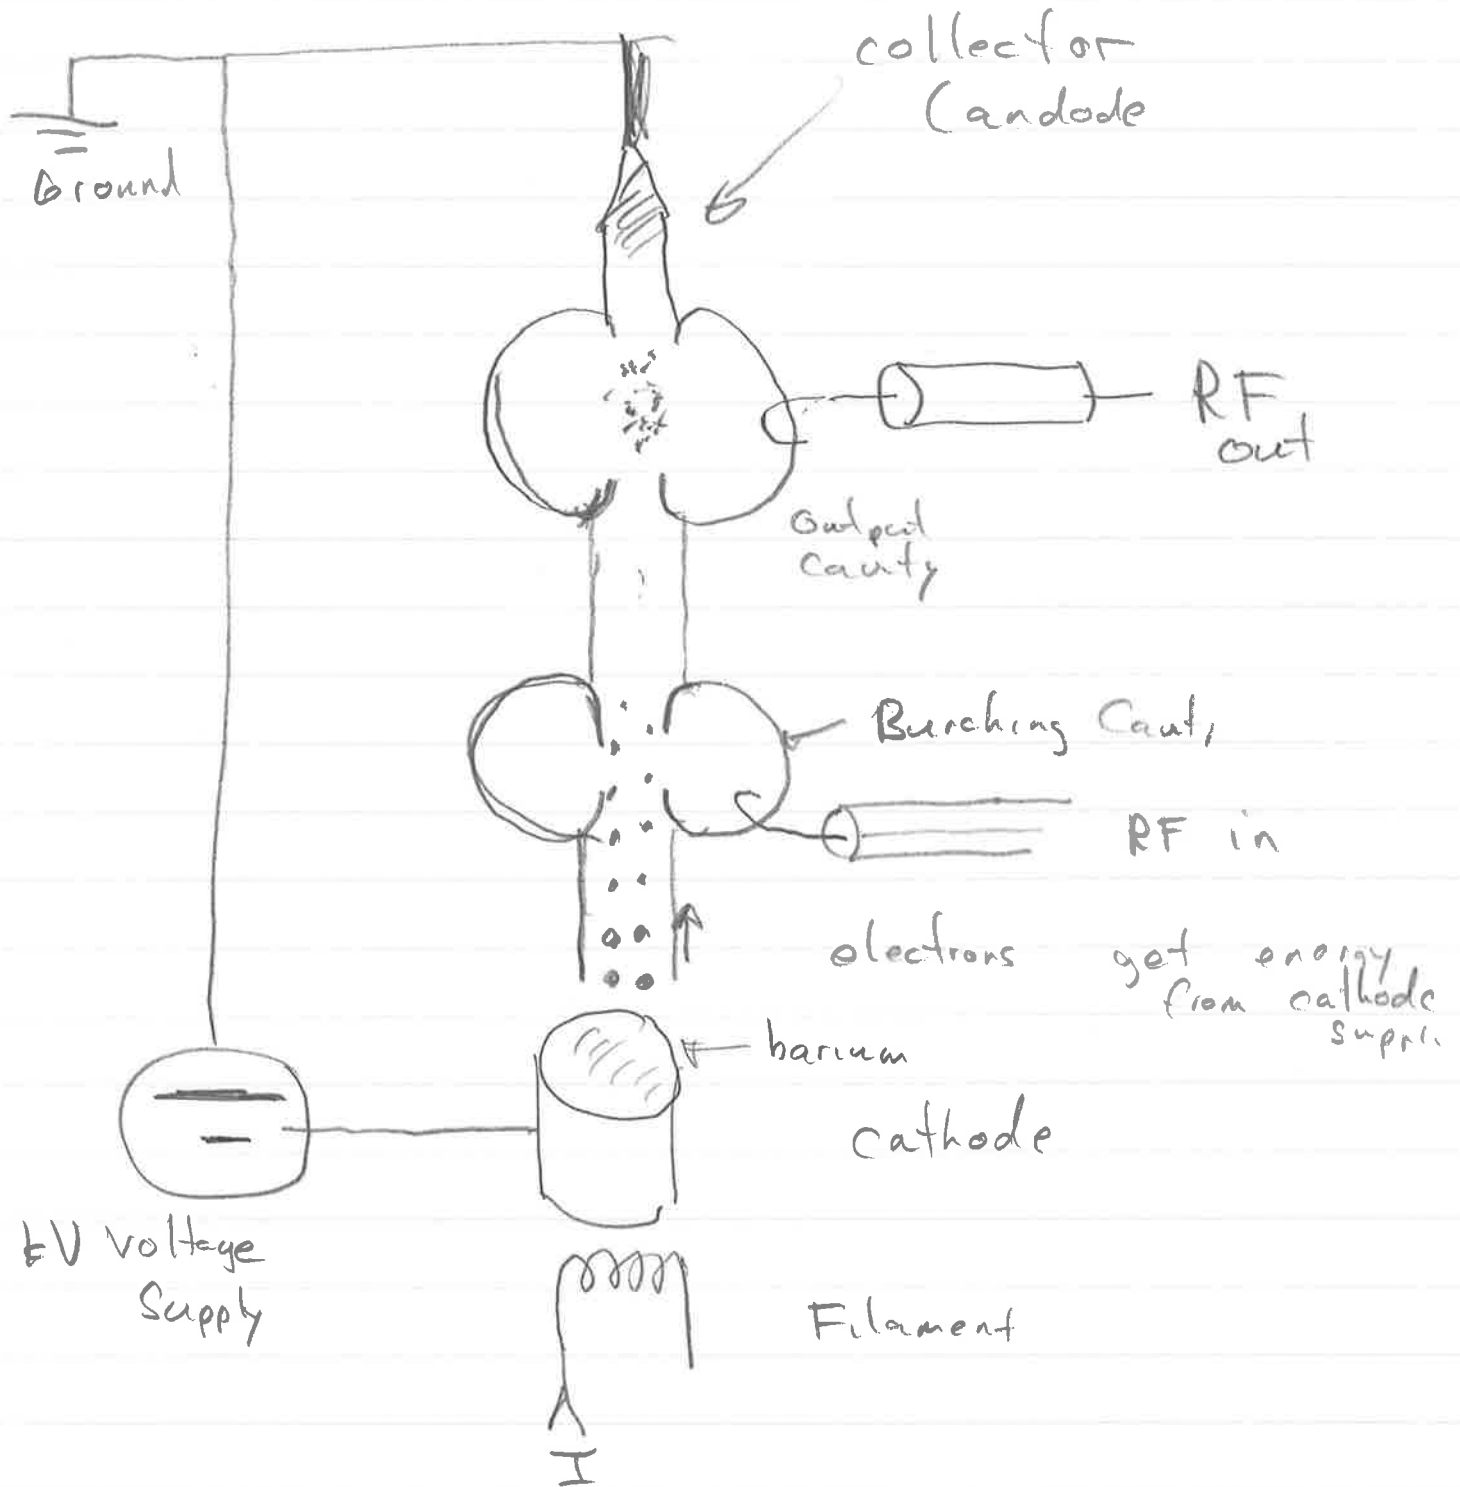 collector
(andode
Ground
RF
out
Output
Cavity
Bunching Cavit,
RF in
electrons get energy
from cathode
suppl.
barium
cathode
kV Voltage
Supply
Filament
I